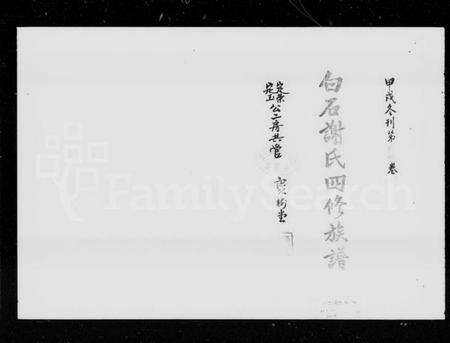 甲戌冬刊第 卷
白石謝氏四修族譜
公二房共管
寶樹堂
FamilySearch